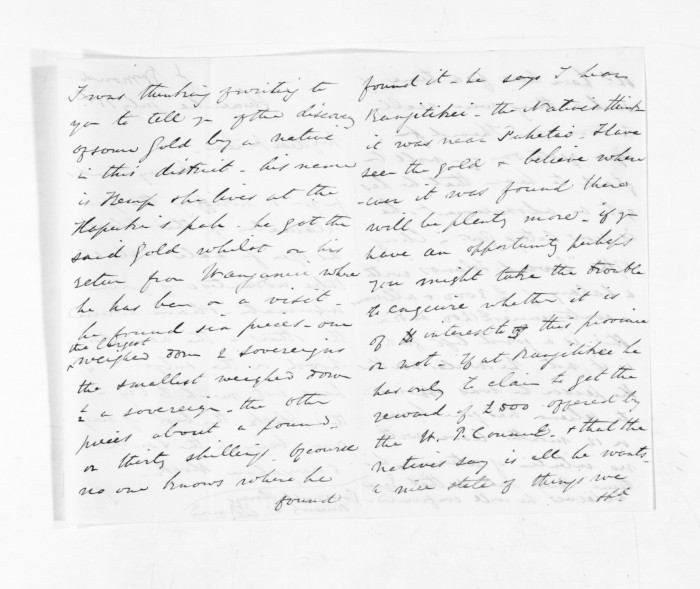 I was thinking of writing to
you to tell yr of the discovery
of some Gold by a native
in this district - his name
is Kemp she lives at the
Hapuku's pah - he got the
said Gold whilst on his
return from Wanganui where
he has been on a visit -
he found six pieces - one
the largest
weighed down 2 sovereigns
the smallest weighed down
½ a sovereign - the other
pieces about a pound -
or thirty shillings. Of course
no one knows where he
found
found it he says I hear
Rangitikei - the Natives think
it was near Patea - I have
seen the gold & believe where
-ever it was found there
will be plenty more - if yr
have an opportunity perhaps
you might take the trouble
to enquire whether it is
of interest to this province
or not - If at Rangitikei he
has only to claim to get the
reward of £500 offered by
the W. P. Council - & that the
Natives say is all he wants -
a nice state of things we